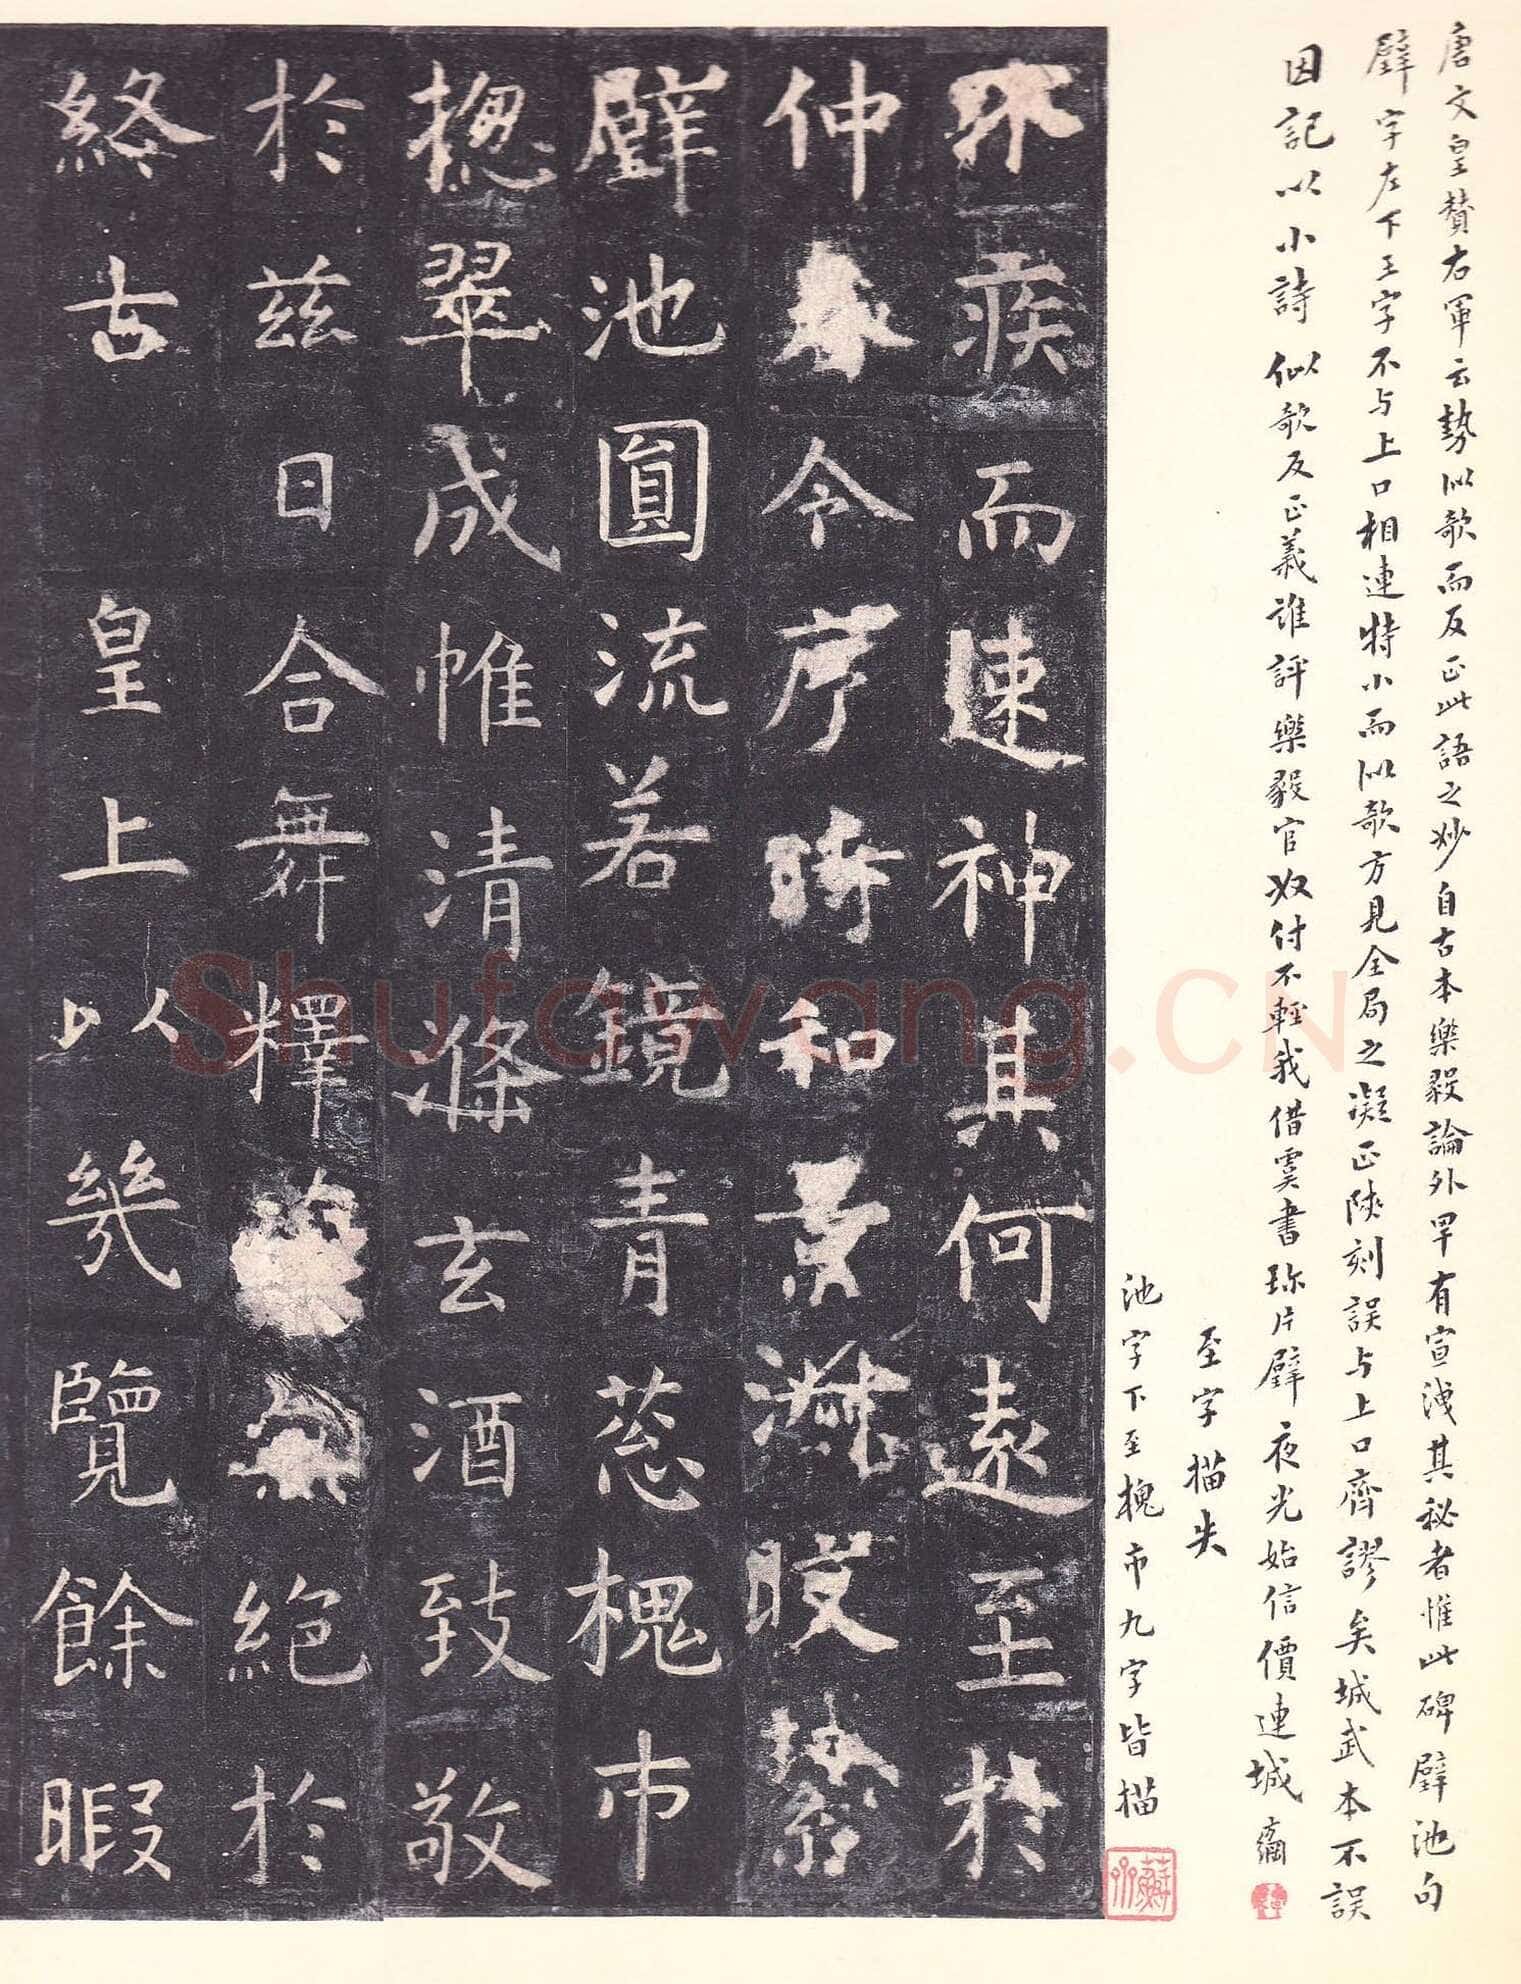 唐文皇贊右軍云勢似欹而反正此語之妙自古本樂毅論外罕有宣洩其秘者惟此碑璧池句
璧字左下王字不与上口相連特小而似欹方見全局之凝正陝刻誤与上口齊謬矣城武本不誤
因記以小詩似欹反正義誰評樂毅官奴付不輕我借虞書珎片璧夜光始信價連城 綱
至字描失
池字下至槐市九字皆描
不疾而速神其何遠至於
仲春令序時和景淑
璧池圓流若鏡青葱槐市
揔翠成帷清滌玄酒致敬
於茲日合舞釋 絕於
終古 皇上以幾覽餘暇
Shufawang.CN
蘇